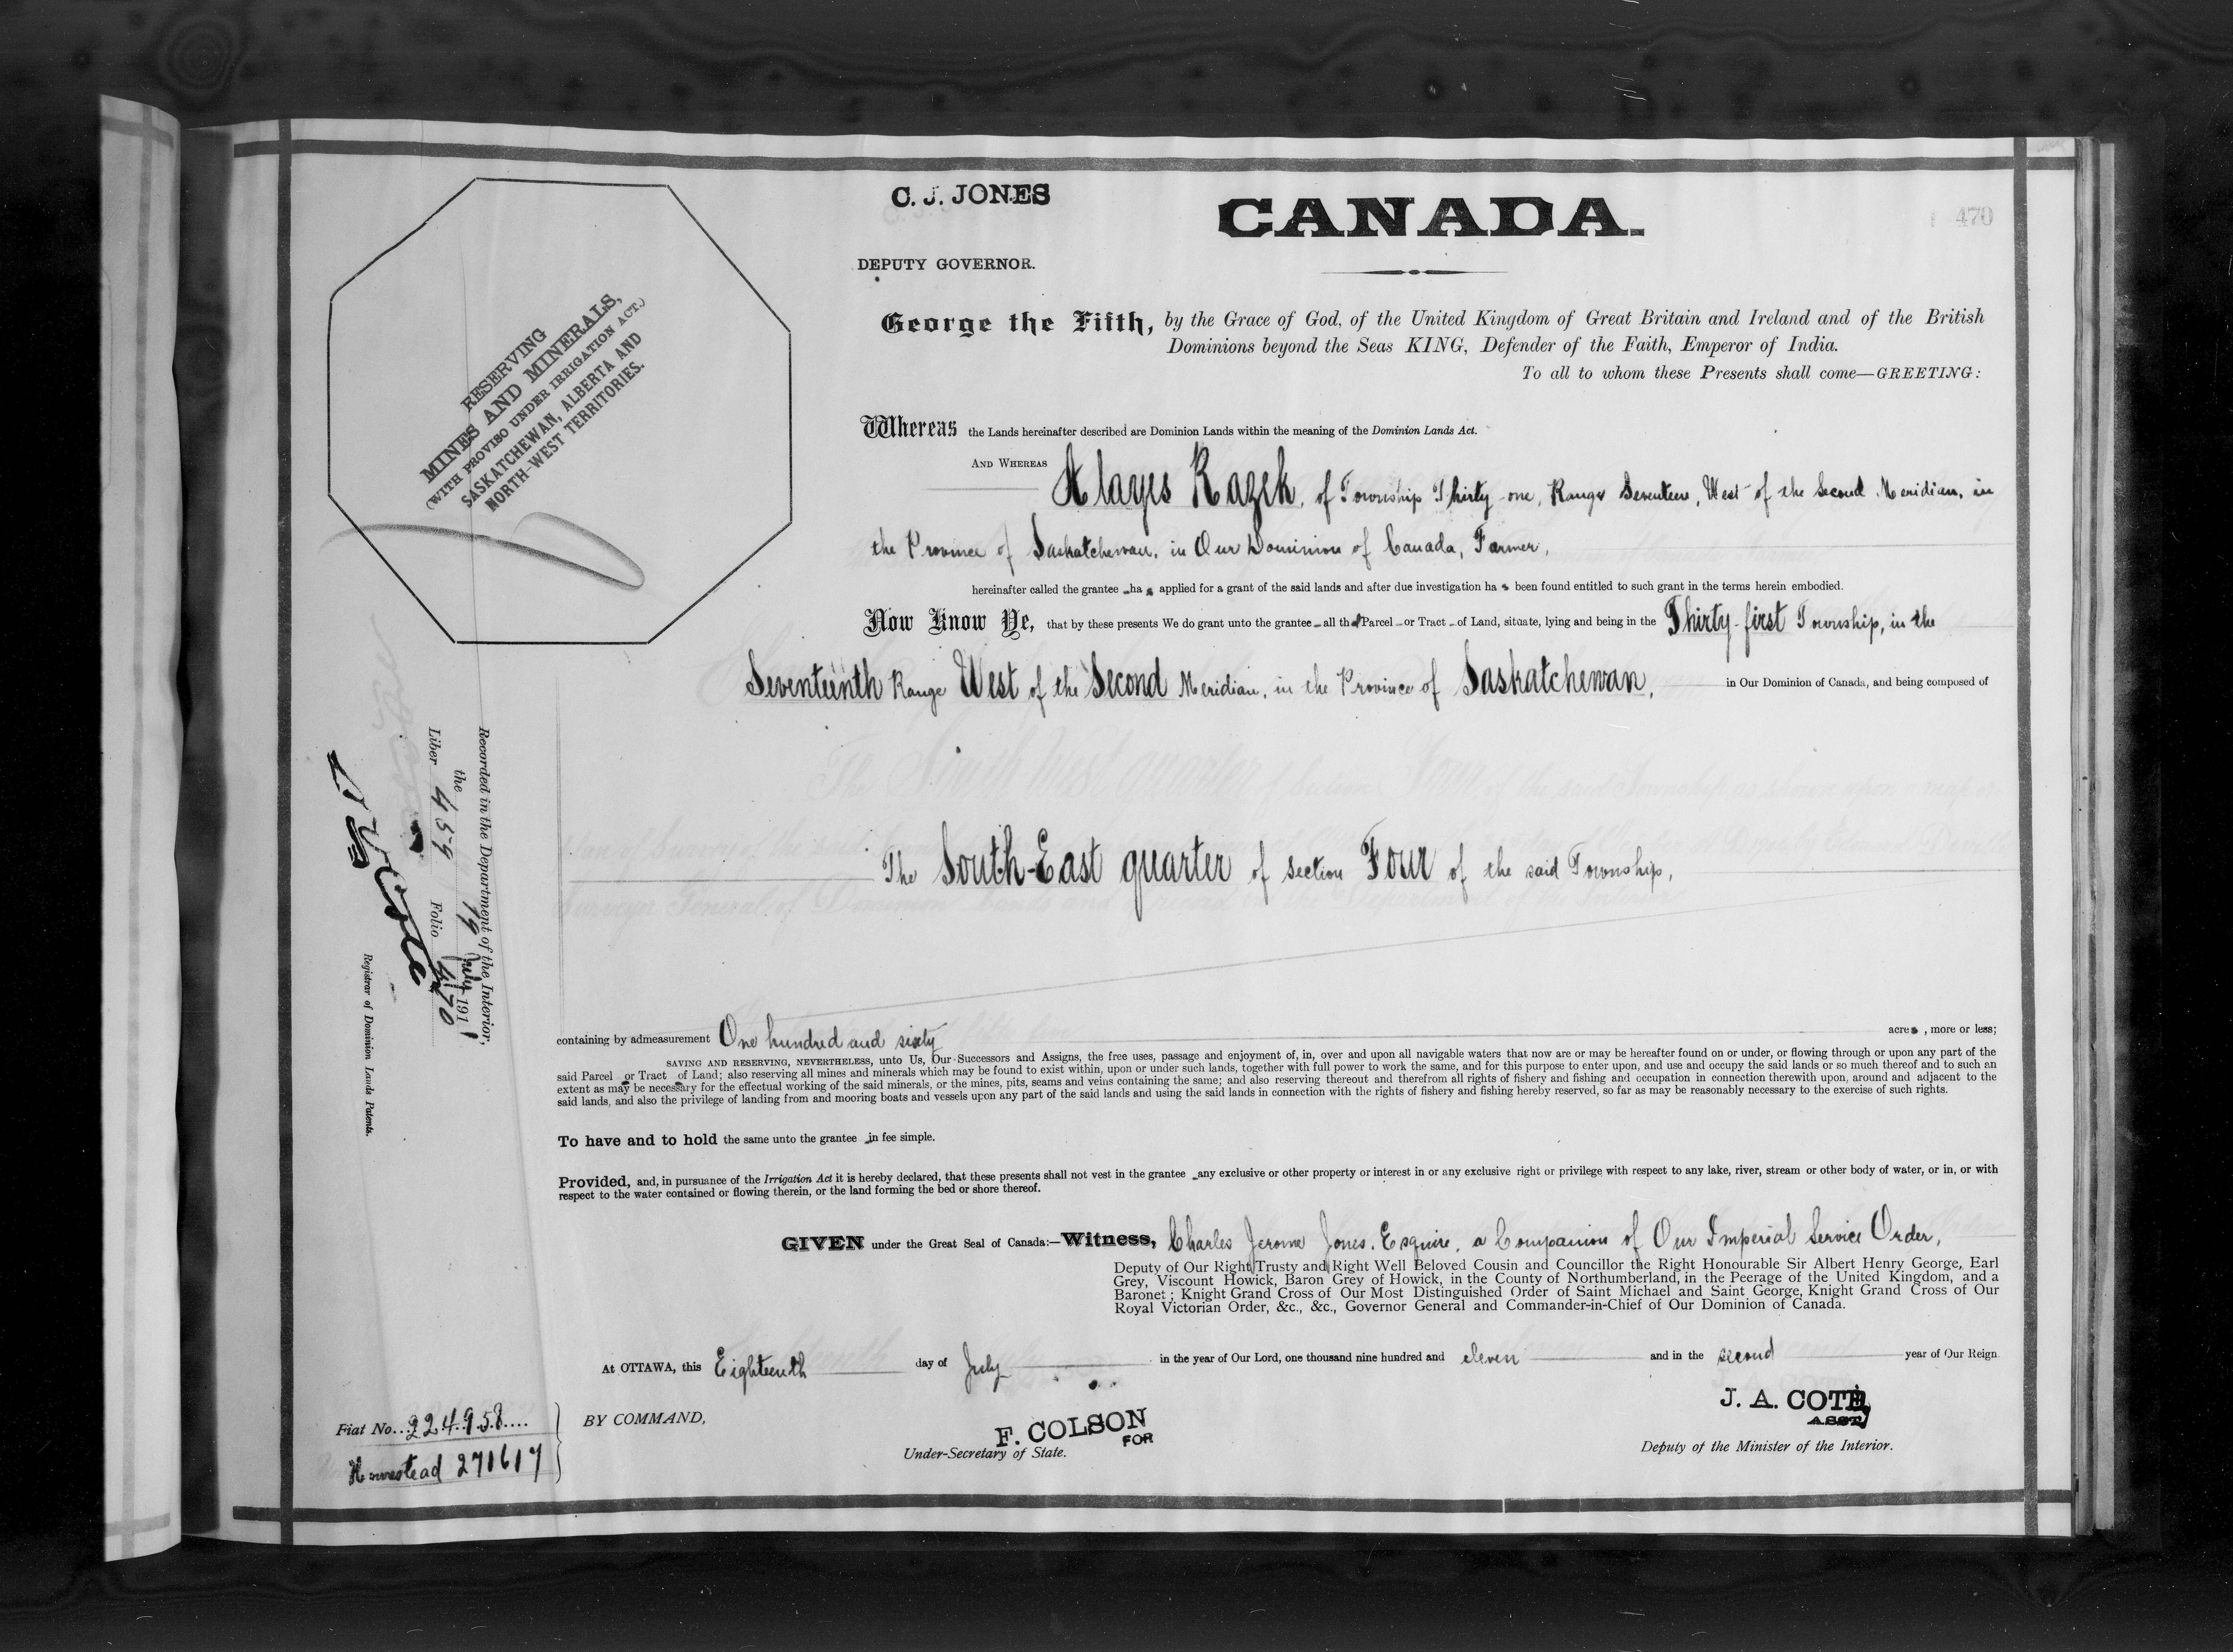 C. J. JONES
DEPUTY GOVERNOR.
CANADA.
470
RESERVING
MINES AND MINERALS,
(WITH PROVISO UNDER IRRIGATION ACT.)
SASKATCHEWAN, ALBERTA AND
NORTH-WEST TERRITORIES.
George the Fifth, by the Grace of God, of the United Kingdom of Great Britain and Ireland and of the British
Dominions beyond the Seas KING, Defender of the Faith, Emperor of India.
To all to whom these Presents shall come—GREETING:
Whereas the Lands hereinafter described are Dominion Lands within the meaning of the Dominion Lands Act.
AND WHEREAS Alayes Kazek, of Township Thirty-one, Range Seventeen, West of the Second Meridian, in
the Province of Saskatchewan, in Our Dominion of Canada, Farmer,
hereinafter called the grantee has applied for a grant of the said lands and after due investigation has been found entitled to such grant in the terms herein embodied.
Now Know Ye, that by these presents We do grant unto the grantee all that Parcel or Tract of Land, situate, lying and being in the Thirty-first Township, in the
Seventeenth Range West of the Second Meridian, in the Province of Saskatchewan, in Our Dominion of Canada, and being composed of
The South-East quarter of Section Four of the said Township,
containing by admeasurement One hundred and sixty acres, more or less;
SAVING AND RESERVING, NEVERTHELESS, unto Us, Our Successors and Assigns, the free uses, passage and enjoyment of, in, over and upon all navigable waters that now are or may be hereafter found on or under, or flowing through or upon any part of the
said Parcel or Tract of Land; also reserving all mines and minerals which may be found to exist within, upon or under such lands, together with full power to work the same, and for this purpose to enter upon, and use and occupy the said lands or so much thereof and to such an
extent as may be necessary for the effectual working of the said minerals, or the mines, pits, seams and veins containing the same; and also reserving thereout and therefrom all rights of fishery and fishing and occupation in connection therewith upon, around and adjacent to the
said lands, and also the privilege of landing from and mooring boats and vessels upon any part of the said lands and using the said lands in connection with the rights of fishery and fishing hereby reserved, so far as may be reasonably necessary to the exercise of such rights.
To have and to hold the same unto the grantee in fee simple.
Provided, and, in pursuance of the Irrigation Act it is hereby declared, that these presents shall not vest in the grantee any exclusive or other property or interest in or any exclusive right or privilege with respect to any lake, river, stream or other body of water, or in, or with
respect to the water contained or flowing therein, or the land forming the bed or shore thereof.
GIVEN under the Great Seal of Canada:—Witness, Charles Jerome Jones, Esquire, a Companion of Our Imperial Service Order,
Deputy of Our Right Trusty and Right Well Beloved Cousin and Councillor the Right Honourable Sir Albert Henry George, Earl
Grey, Viscount Howick, Baron Grey of Howick, in the County of Northumberland, in the Peerage of the United Kingdom, and a
Baronet; Knight Grand Cross of Our Most Distinguished Order of Saint Michael and Saint George, Knight Grand Cross of Our
Royal Victorian Order, &c., &c., Governor General and Commander-in-Chief of Our Dominion of Canada.
At OTTAWA, this Eighteenth day of July in the year of Our Lord, one thousand nine hundred and eleven and in the second year of Our Reign
BY COMMAND,
F. COLSON
FOR
Under-Secretary of State.
J. A. COTE,
ASST.
Deputy of the Minister of the Interior.
Fiat No. 224958
Homestead 271617
Recorded in the Department of the Interior,
the 19 July 1911
Liber 459 Folio 470
Registrar of Dominion Lands Patents.